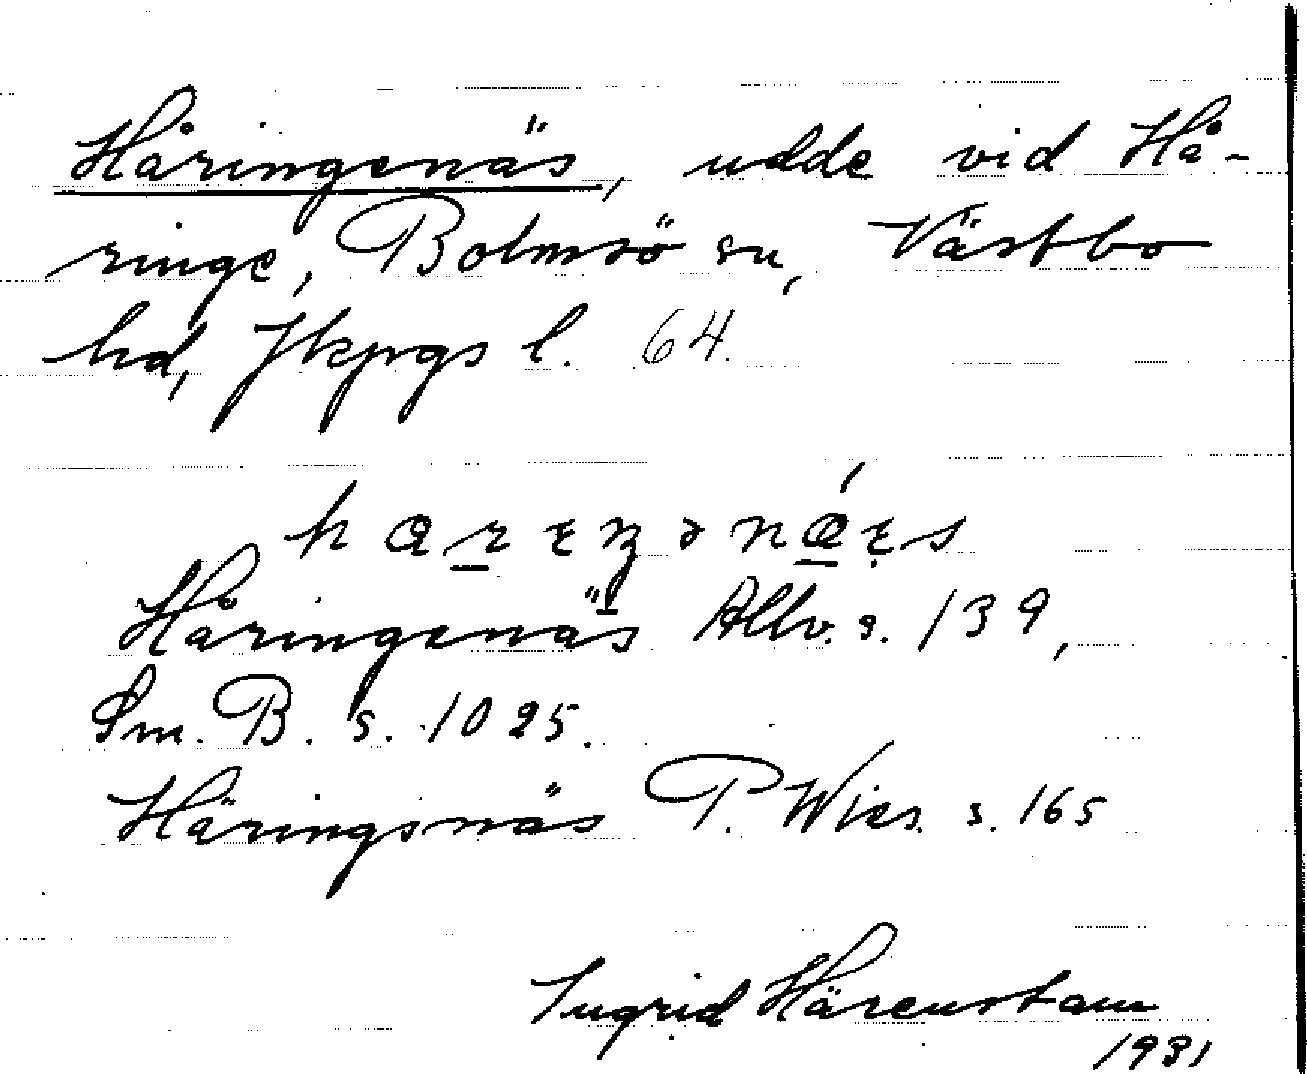 Håringenäs, udde vid Hå-
ringe, Bolmsö sn, Västbo
hd, Jkpgs l. 64.
Håringenäs Allv. s. 139,
Sm. B. s. 1025.
Häringsnäs P. Wies. s. 165
Ingrid Härenstam
1931